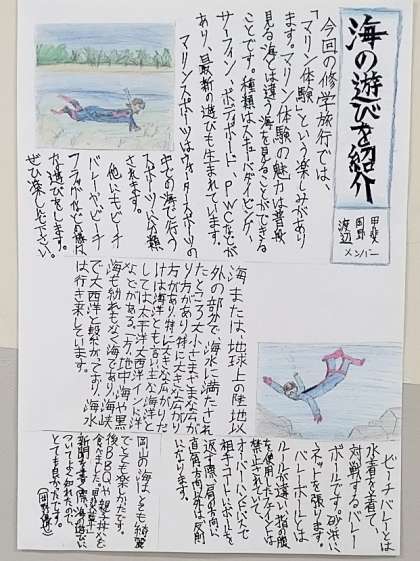 海の遊びを紹介
甲斐
岡野
渡辺
メンバー
今回の修学旅行では、
「マリン体験」という楽しみがあり
ます。マリン体験の魅力は普段
見る海とは違う海を見ることができる
ことです。種類はスキューバダイビング、
サーフィン、ボディボード、PWCなどが
あり、最新の遊びも生まれています。
マリンスポーツはウォータースポーツの
中での海で行う
スポーツに分類
されます。
他にもビーチ
バレーやビーチ
フラッグなどの様
た遊びをします。
ぜひ楽しんで下さい。
海または、地球上の陸地以
外の部分で、海水に満たされ
たところ大小さまざまな広が
り方があり、特に大きな広がり
方があり、特に
けは海洋とも言う主な海洋と
しては太平洋、大西洋、インド洋
などがある、一方、地中海や黒
海も紛れもなく海であり、海峡
で大西洋と繋がっており、海水
は行き来しています。
ビーチバレーとは
水着を着て
対戦するバレー
ボールです。砂浜に
ネットを張ります。
バレーボールとは
ルールが違い、指の腹
を使用したフェイントは
禁止されていて、
オーバーハンドパスで
相手コートにボールを
返す際、肩の方向に
直角方向以外は反則
になります。
岡山の海はとても綺麗
でとても楽しかったです。
後BBQや親子丼を
食べました。
新聞を書く際、海の遊びに
ついてよく知れたので、
とても良かったです。